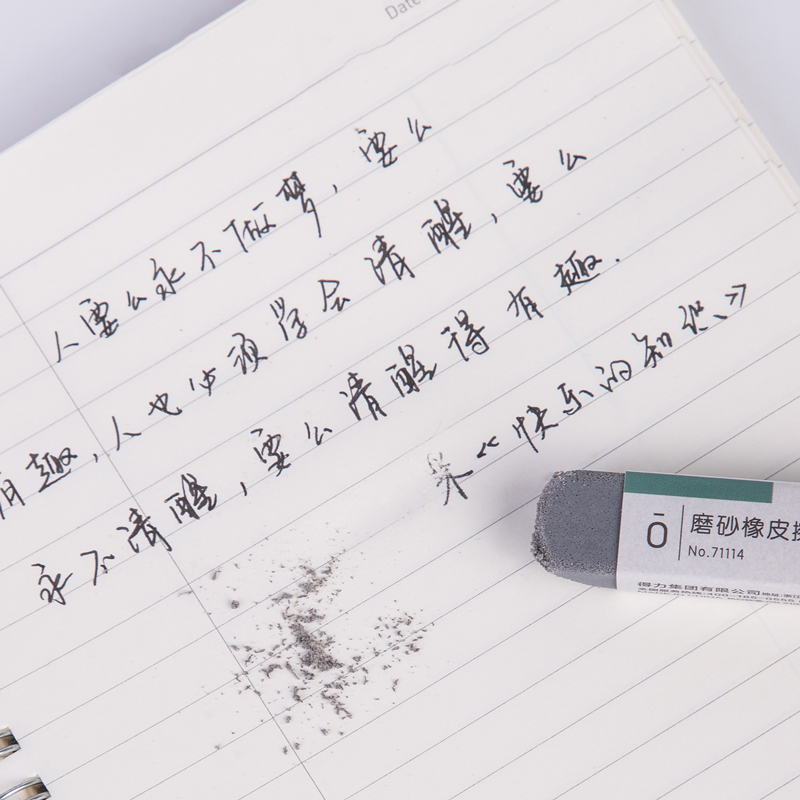 Date
人要么永不做梦，要么
有趣，人也必须学会清醒，要么
永不清醒，要么清醒得有趣.
《快乐的知识》
ō
磨砂橡皮擦
No.71114
得力集团有限公司